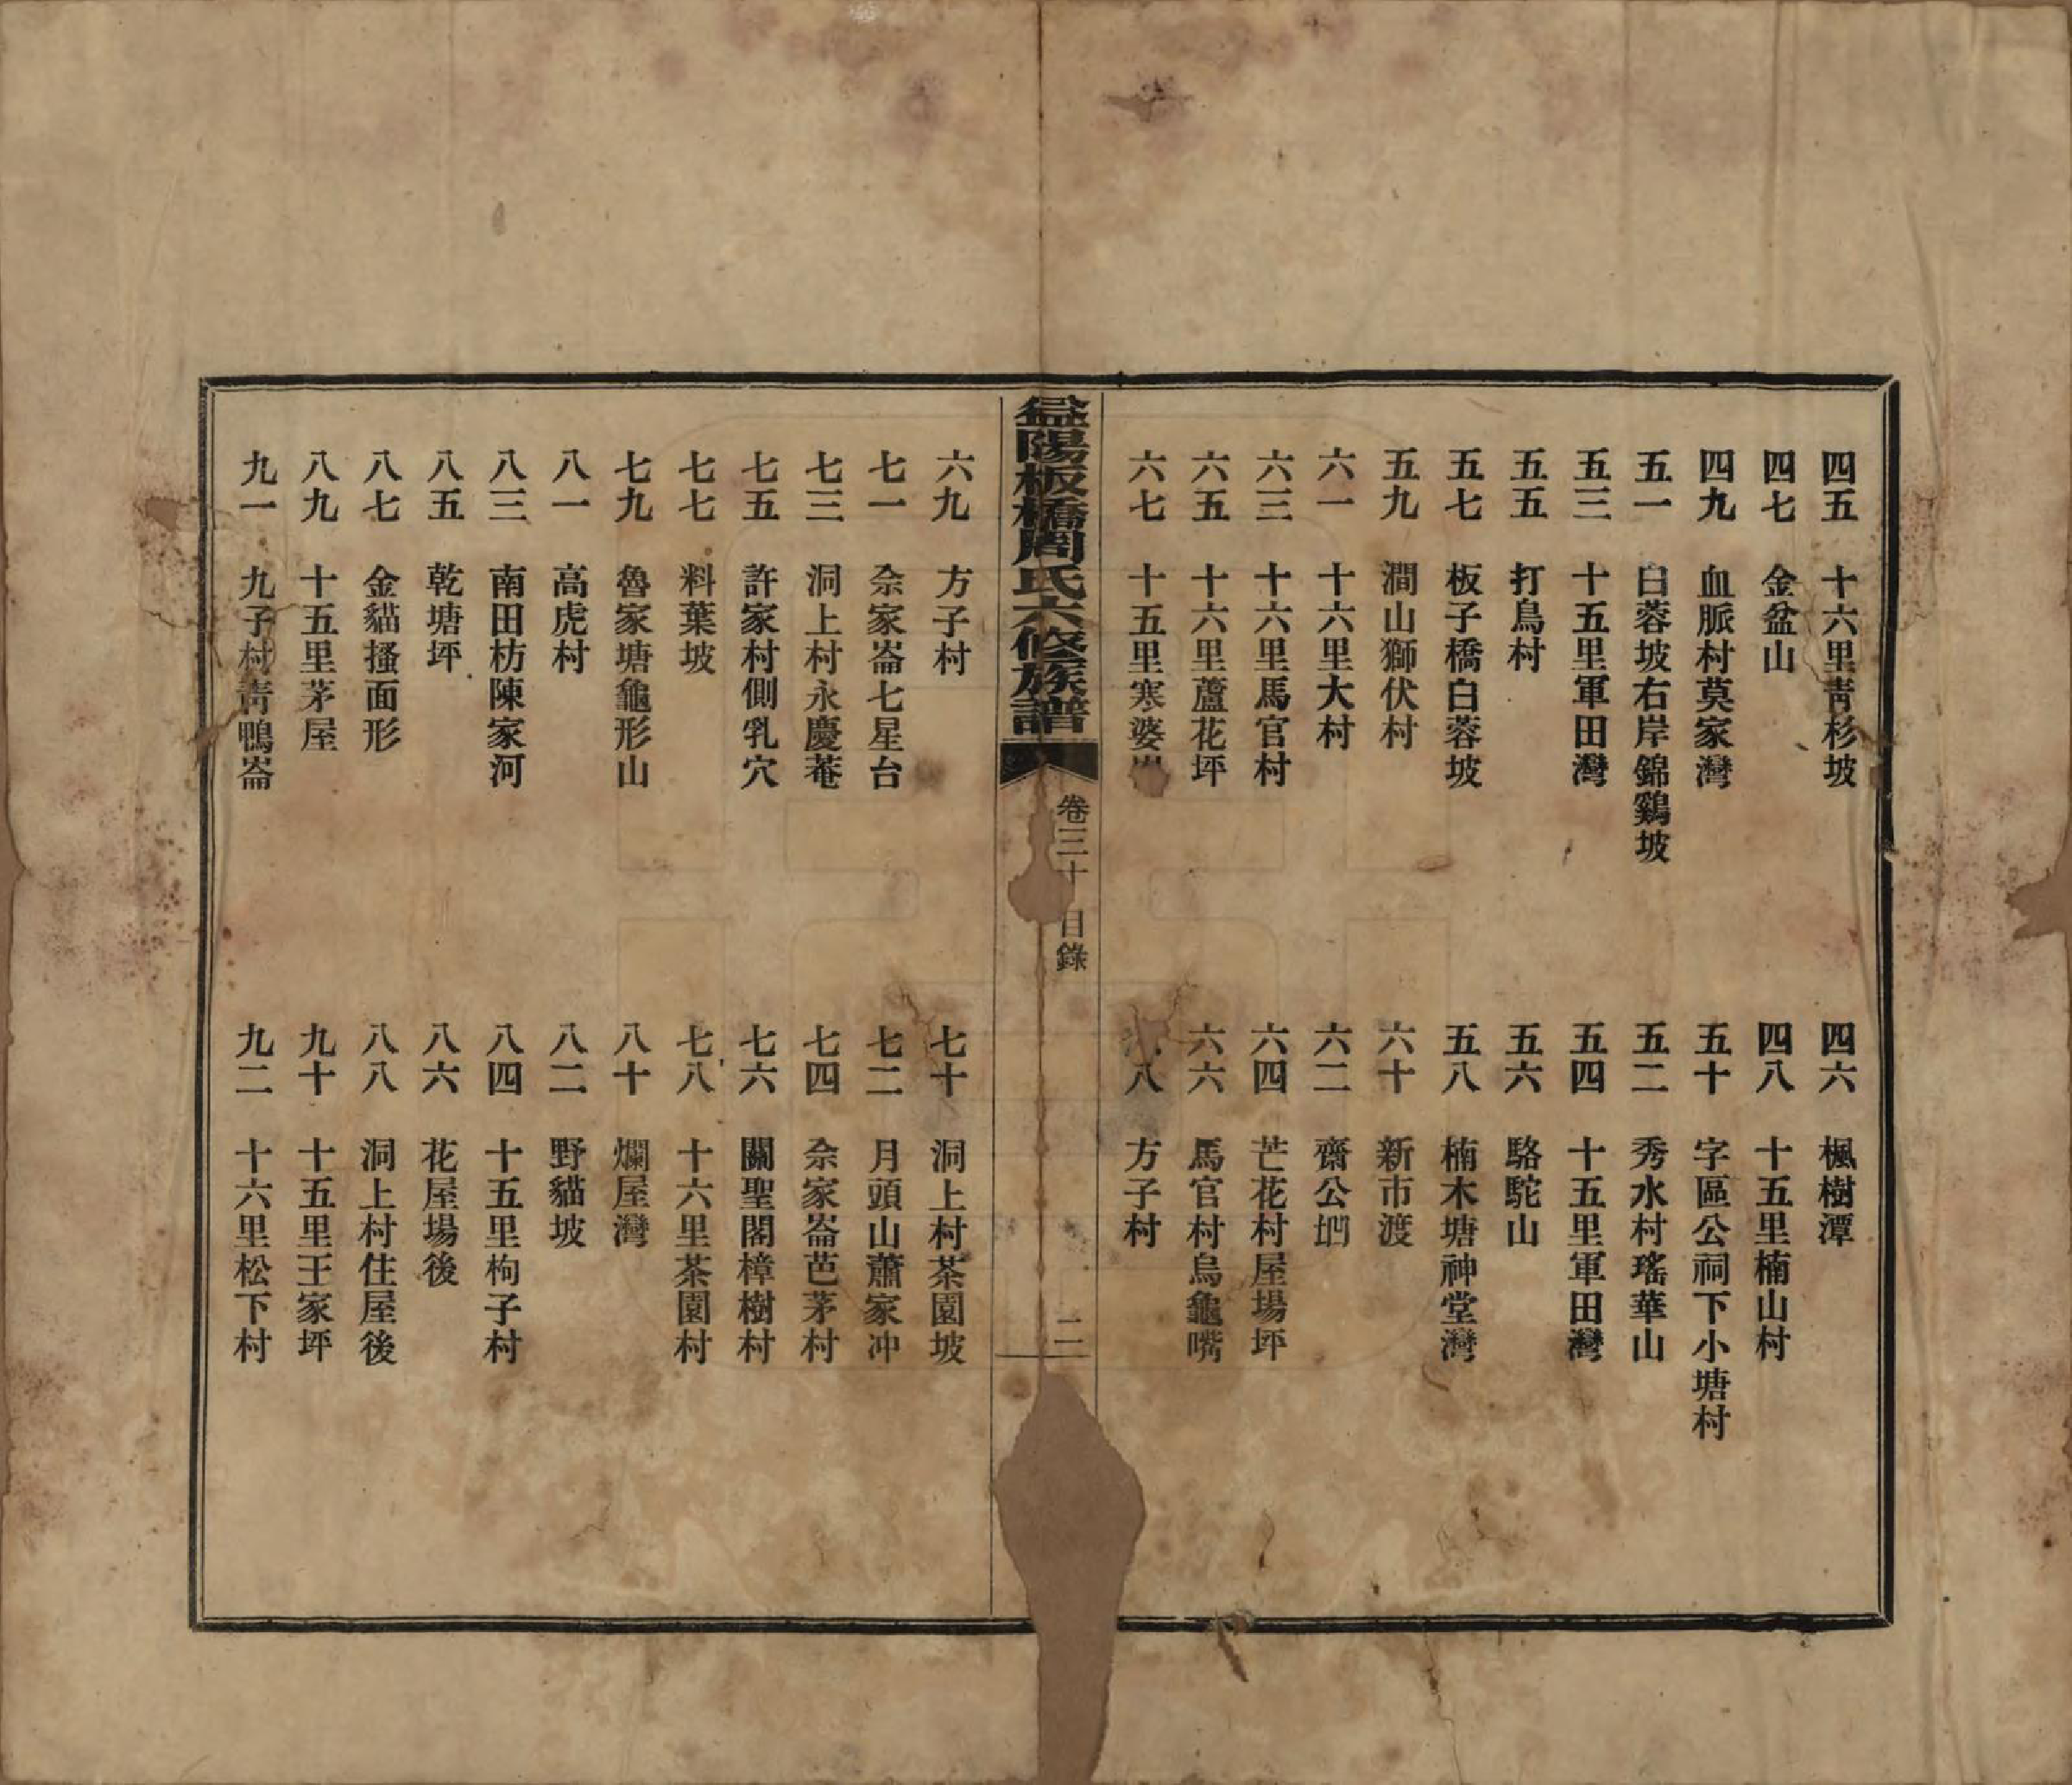 四五　十六里靑杉坡　四六　楓樹潭
四七　金盆山　四八　十五里楠山村
四九　血脈村莫家灣　五十　字區公祠下小塘村
五一　白蓉坡右岸錦鷄坡　五二　秀水村瑤華山
五三　十五里軍田灣　五四　十五里軍田灣
五五　打鳥村　五六　駱駝山
五七　板子橋白蓉坡　五八　楠木塘神堂灣
五九　澗山獅伏村　六十　新市渡
六一　十六里大村　六二　齋公𡌶
六三　十六里馬官村　六四　芒花村屋場坪
六五　十六里蘆花坪　六六　馬官村烏龜嘴
六七　十五里寒婆　八　方子村
益陽板橋周氏六修族譜　卷三十　目錄　二
六九　方子村　七十　洞上村茶園坡
七一　佘家崙七星台　七二　月頭山蕭家冲
七三　洞上村永慶菴　七四　佘家崙芭茅村
七五　許家村側乳穴　七六　關聖閣樟樹村
七七　料葉坡　七八　十六里茶園村
七九　魯家塘龜形山　八十　爛屋灣
八一　高虎村　八二　野貓坡
八三　南田枋陳家河　八四　十五里枸子村
八五　乾塘坪　八六　花屋場後
八七　金貓搔面形　八八　洞上村住屋後
八九　十五里茅屋　九十　十五里王家坪
九一　九子村靑鴨崙　九二　十六里松下村